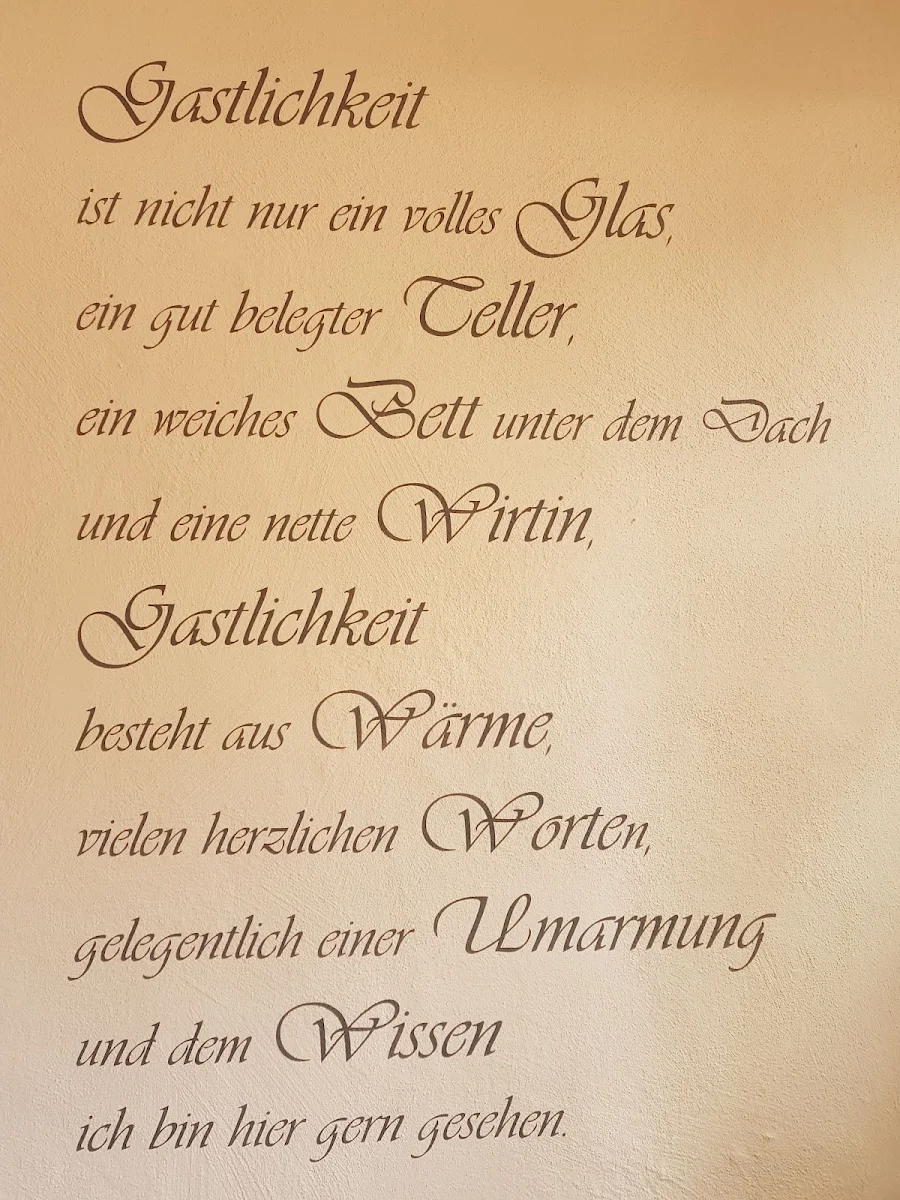 Gastlichkeit
ist nicht nur ein volles Glas,
ein gut belegter Teller,
ein weiches Bett unter dem Dach
und eine nette Wirtin,
Gastlichkeit
besteht aus Wärme,
vielen herzlichen Worten,
gelegentlich einer Umarmung
und dem Wissen
ich bin hier gern gesehen.